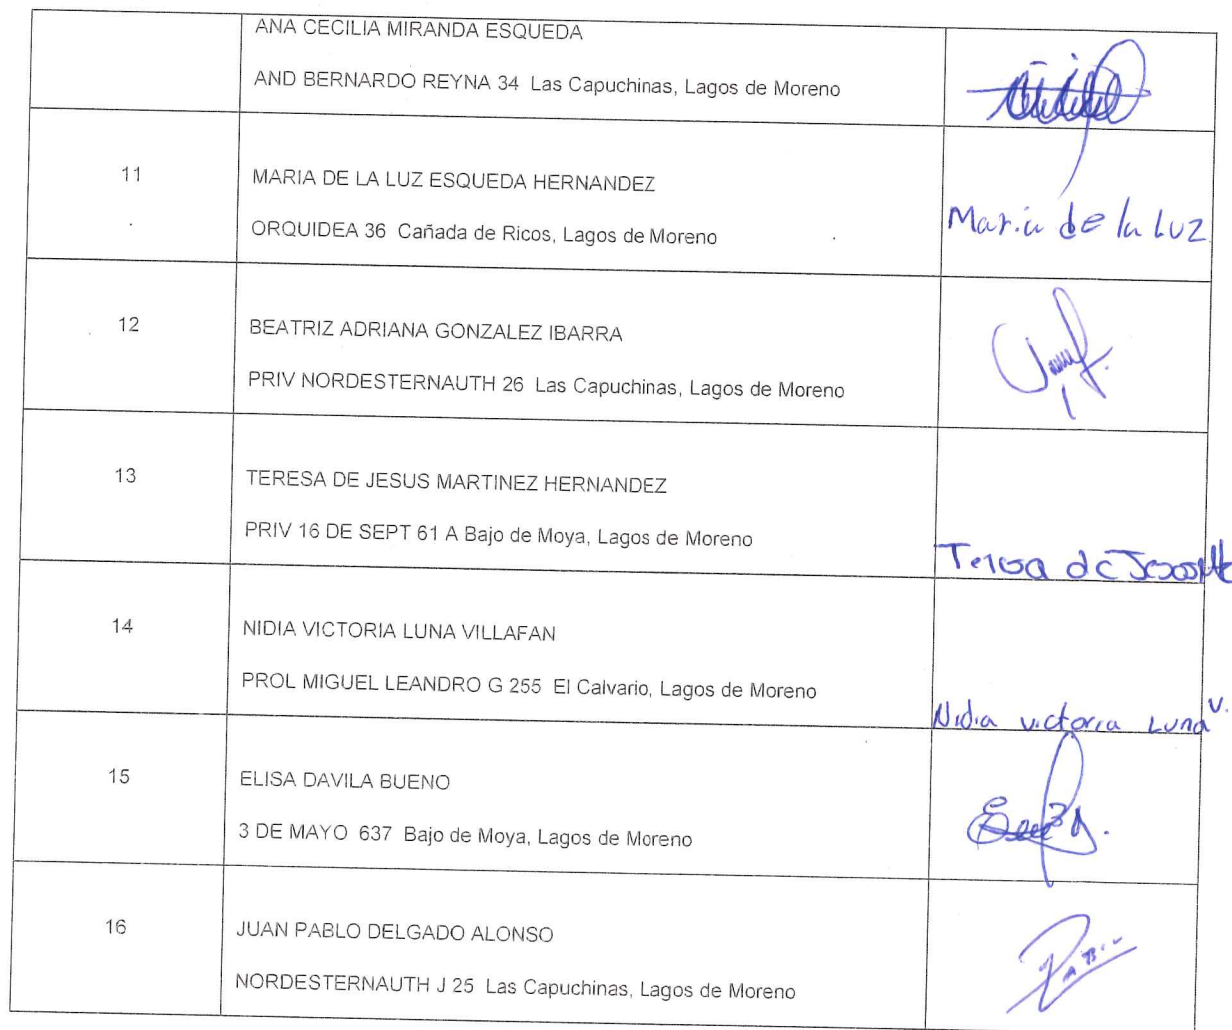 ANA CECILIA MIRANDA ESQUEDA
AND BERNARDO REYNA 34 Las Capuchinas, Lagos de Moreno
11
MARIA DE LA LUZ ESQUEDA HERNANDEZ
ORQUIDEA 36 Cañada de Ricos, Lagos de Moreno
Maria de la Luz
12
BEATRIZ ADRIANA GONZALEZ IBARRA
PRIV NORDESTERNAUTH 26 Las Capuchinas, Lagos de Moreno
13
TERESA DE JESUS MARTINEZ HERNANDEZ
PRIV 16 DE SEPT 61 A Bajo de Moya, Lagos de Moreno
Teresa de Jesos
14
NIDIA VICTORIA LUNA VILLAFAN
PROL MIGUEL LEANDRO G 255 El Calvario, Lagos de Moreno
Nidia victoria Luna V.
15
ELISA DAVILA BUENO
3 DE MAYO 637 Bajo de Moya, Lagos de Moreno
16
JUAN PABLO DELGADO ALONSO
NORDESTERNAUTH J 25 Las Capuchinas, Lagos de Moreno